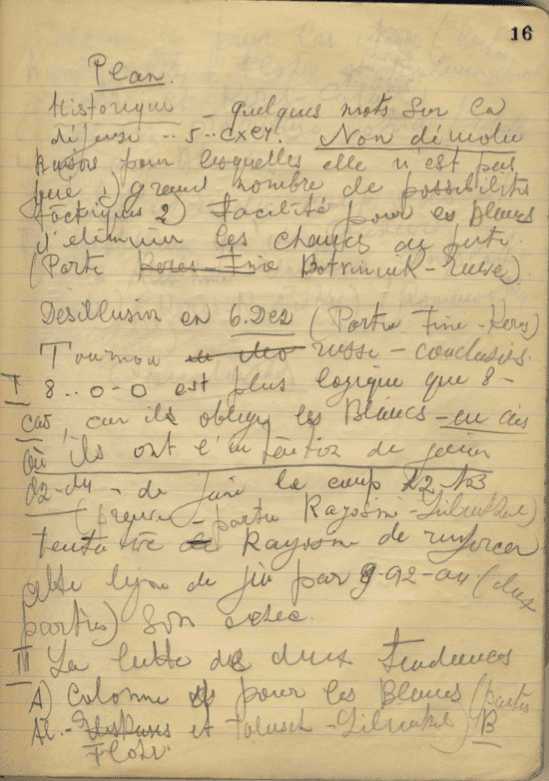 16
Plan.
Historique - quelques mots sur la
défense .. 5..exe4. Non démolie
Raisons pour lesquelles elle n'est pas
jouée 1) grand nombre de possibilités
tactiques 2) Facilité pour les Blancs
d'éliminer les chances de perte.
(Partie Keres-Fine Botvinnik-
Désillusion en 6.De2 (Partie Fine-Keres)
Tournoi russe - conclusions.
I 8..0-0 est plus logique que 8-
Ca5, car ils oblige les Blancs - en cas
où ils ont l'intention de jouer
d2-d4 - de faire le coup
(preuve - partie Ragosine-
tentative de Ragosine de renforcer
cette ligne de jeu par 9-a2-a4 (deux
parties) son échec.
III La lutte de deux tendances
A) Colonne pour les Blancs (parties
et Tolusch- B
Flohr.